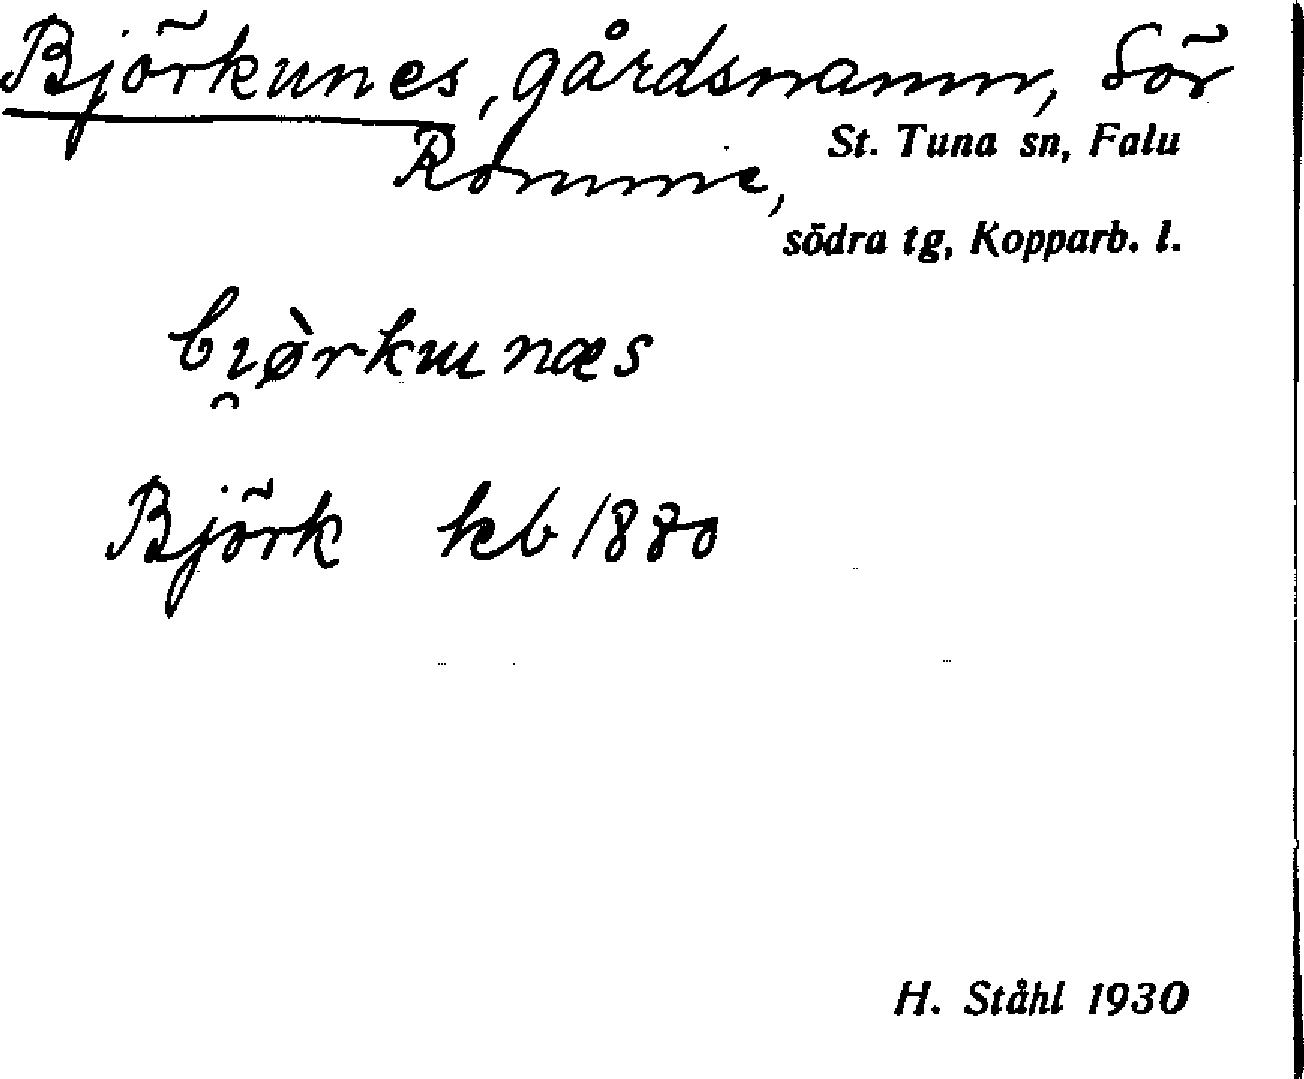 Björkunes, gårdsnamn, Sör
Romme,
St. Tuna sn, Falu
södra tg, Kopparb. l.
bi̯ø̀rkɯnæs
Björk kb 1880
H. Ståhl 1930